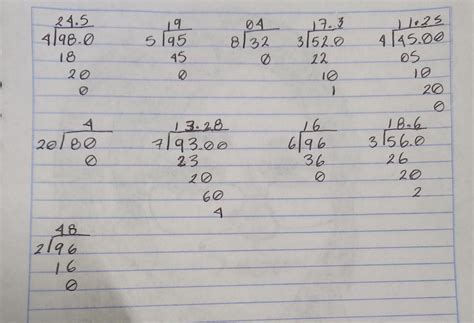 24.5 19 04 17.3 11.25
4/98.0 5/95 8/32 3/52.0 4/45.00
18 45 0 22 05
20 0 10 10
0 1 20
0
4 13.28 16 18.6
20/80 7/93.00 6/96 3/56.0
0 23 36 26
20 0 20
60 2
4
48
2/96
16
0